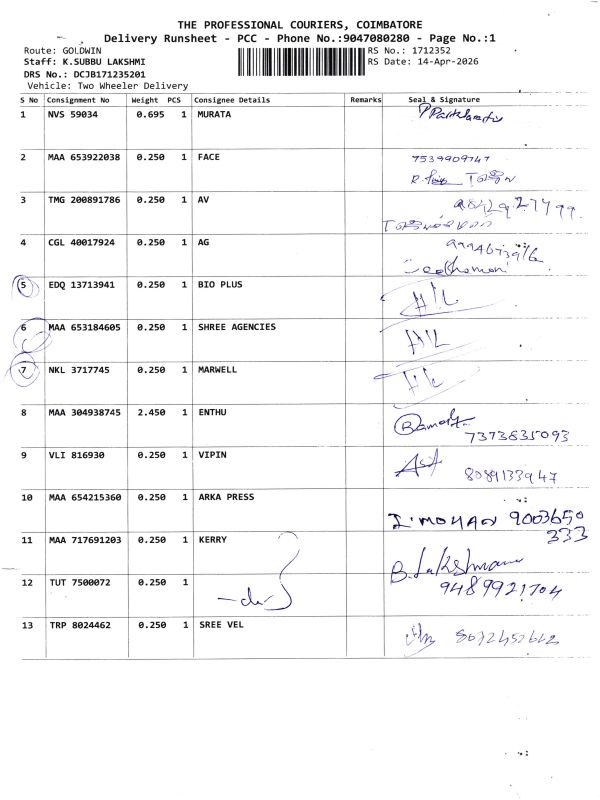 THE PROFESSIONAL COURIERS, COIMBATORE
Delivery Runsheet - PCC - Phone No.:9047080280 - Page No.:1
Route: GOLDWIN
RS No.: 1712352
Staff: K.SUBBU LAKSHMI
RS Date: 14-Apr-2026
DRS No.: DCJB171235201
Vehicle: Two Wheeler Delivery
S No Consignment No Weight PCS Consignee Details Remarks Seal & Signature
1 NVS 59034 0.695 1 MURATA
2 MAA 653922038 0.250 1 FACE 7539909747
3 TMG 200891786 0.250 1 AV
4 CGL 40017924 0.250 1 AG
5 EDQ 13713941 0.250 1 BIO PLUS
6 MAA 653184605 0.250 1 SHREE AGENCIES
7 NKL 3717745 0.250 1 MARWELL
8 MAA 304938745 2.450 1 ENTHU
7373835093
9 VLI 816930 0.250 1 VIPIN
8089133947
10 MAA 654215360 0.250 1 ARKA PRESS
I. MOHAN 9003650
333
11 MAA 717691203 0.250 1 KERRY
B. Lakshmana
12 TUT 7500072 0.250 1
9489921704
13 TRP 8024462 0.250 1 SREE VEL